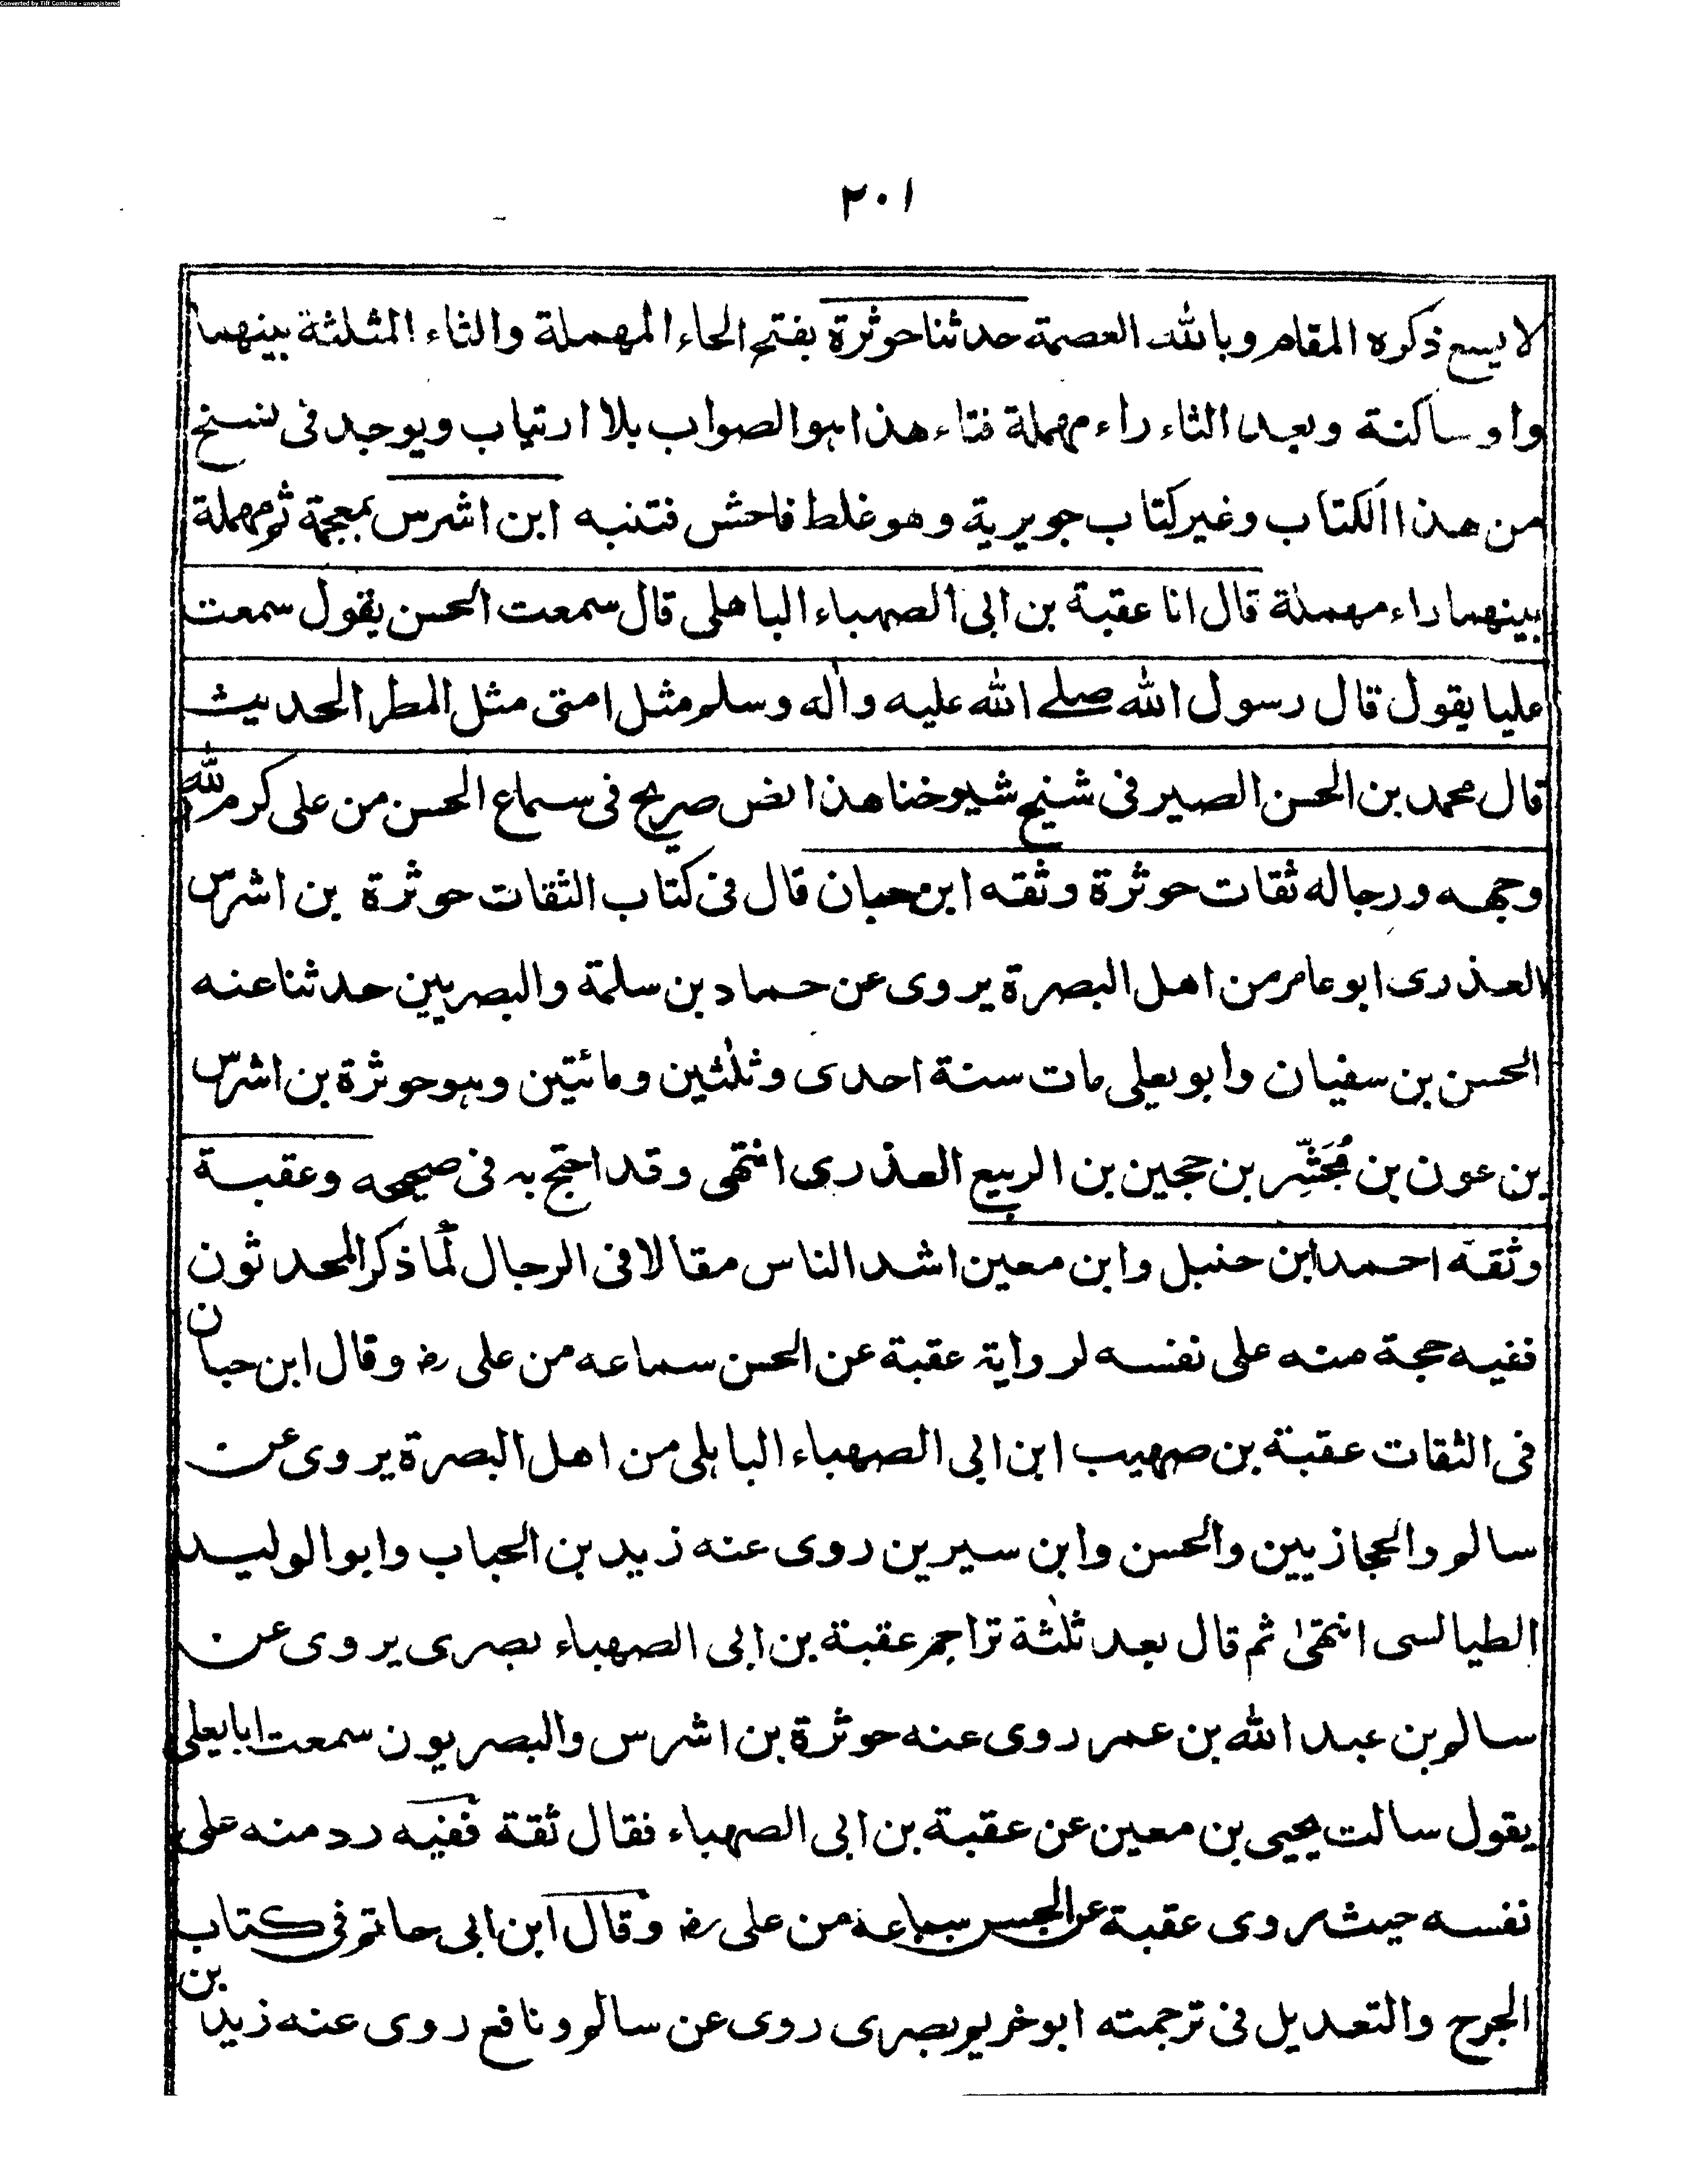 Converted by Tiff Combine - unregistered
٢٠١
لا يسع ذكره المقام وبالله العصمة حدثنا حوثرة بفتح الحاء المهملة والثاء المثلثة بينهما
واو ساكنة وبعد الثاء راء مهملة فتاء هذا هو الصواب بلا ارتياب ويوجد فى نسخ
من هذا الكتاب وغير كتاب جويرية وهو غلط فاحش فتنبه ابن اشرس بمعجمة ثم مهملة
بينهما راء مهملة قال انا عقبة بن ابى الصهباء الباهلى قال سمعت الحسن يقول سمعت
عليا يقول قال رسول الله صلے الله عليه واٰله وسلم مثل امتى مثل المطر الحديث
قال محمد بن الحسن الصيرفى شيخ شيوخنا هذا نص صريح فى سماع الحسن من على كرم الله
وجهه ورجاله ثقات حوثرة وثقه ابن حبان قال فى كتاب الثقات حوثرة بن اشرس
العذرى ابو عامر من اهل البصرة يروى عن حماد بن سلمة والبصريين حدثنا عنه
الحسن بن سفيان وابو يعلى مات سنة احدى وثلٰثين ومائتين وهو حوثرة بن اشرس
بن عون بن مُجَشِّر بن حجين بن الربيع العذرى انتهى وقد احتج به فى صحيحه وعقبة
وثقه احمد ابن حنبل وابن معين اشد الناس مقالا فى الرجال لما ذكر المحدثون
ففيه حجة منه على نفسه لرواية عقبة عن الحسن سماعه من على رضـ وقال ابن حبان
فى الثقات عقبة بن صهيب ابن ابى الصهباء الباهلى من اهل البصرة يروى عن
سالم والحجازيين والحسن وابن سيرين روى عنه زيد بن الحباب وابو الوليد
الطيالسى انتهىٰ ثم قال بعد ثلٰثة تراجم عقبة بن ابى الصهباء بصرى يروى عن
سالم بن عبد الله بن عمر روى عنه حوثرة بن اشرس والبصريون سمعت ابا يعلى
يقول سالت يحيى بن معين عن عقبة بن ابى الصهباء فقال ثقة ففيه رد منه على
نفسه حيث روى عقبة عن الحسن سماعه من على رضـ وقال ابن ابى حاتم فى كتاب
الجرح والتعديل فى ترجمته ابو خريم بصرى روى عن سالم ونافع روى عنه زيد بن